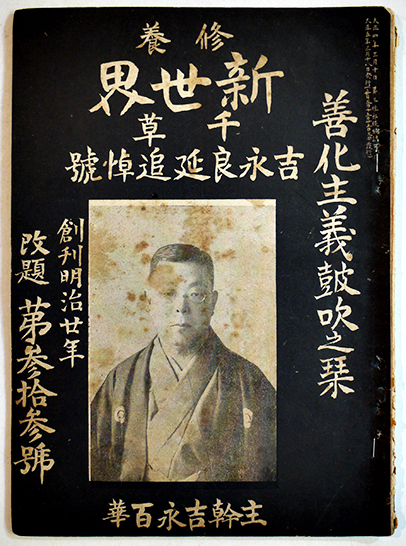 修養
新世界
千草
吉永良延追悼號
善化主義皷吹之栞
創刊明治廿年
改題 第参拾参號
主幹吉永百華